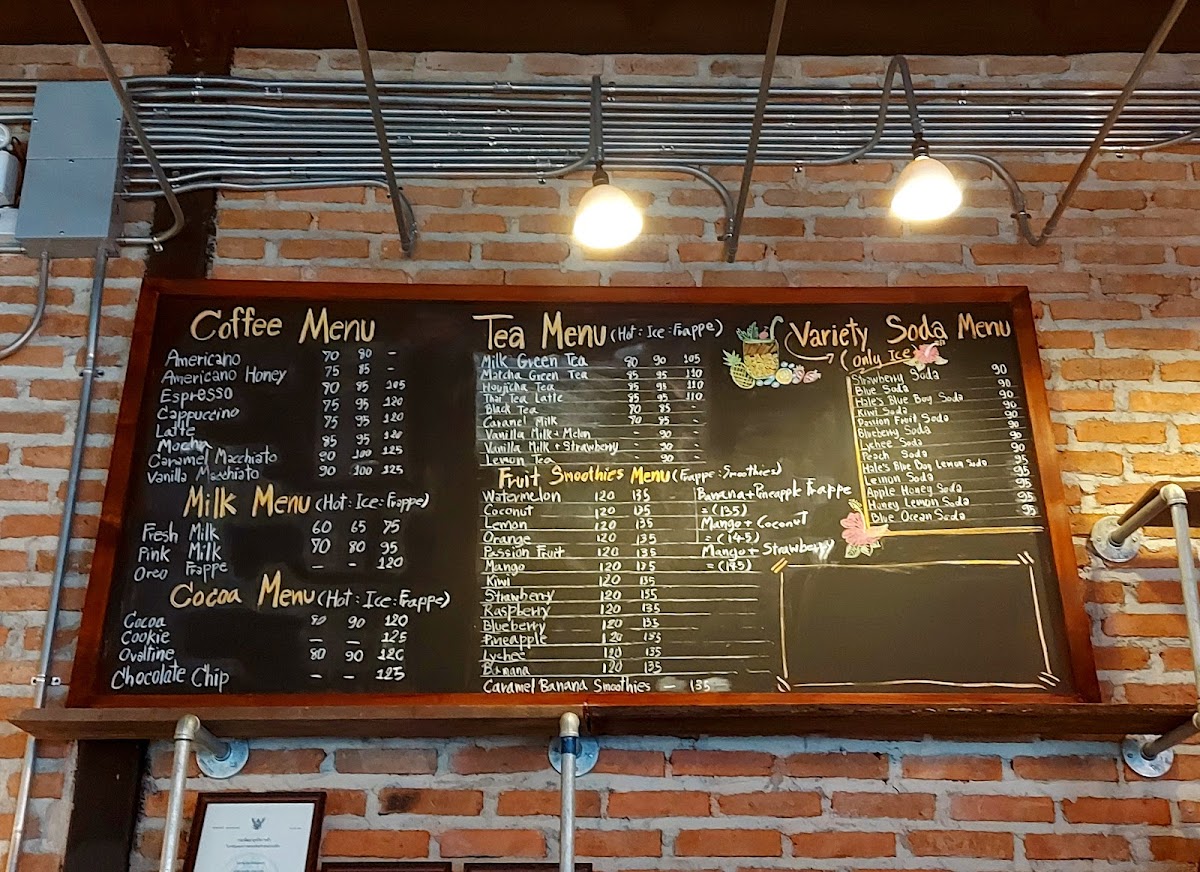 Coffee Menu
Americano 70 80 -
Americano Honey 75 85 -
Espresso 80 85 105
Cappuccino 75 95 120
Latte 75 95 120
Mocha 85 95 120
Caramel Macchiato 90 100 125
Vanilla Macchiato 90 100 125
Milk Menu (Hot : Ice : Frappe)
Fresh Milk 60 65 75
Pink Milk 70 80 95
Oreo Frappe - - 120
Cocoa Menu (Hot : Ice : Frappe)
Cocoa 80 90 120
Cookie - - 125
Ovaltine 80 90 120
Chocolate Chip - - 125
Tea Menu (Hot : Ice : Frappe)
Milk Green Tea 80 90 105
Matcha Green Tea 85 95 110
Houjicha Tea 85 95 110
Thai Tea Latte 85 95 110
Black Tea 70 85 -
Caramel Milk 70 85 -
Vanilla Milk + Melon - 90 -
Vanilla Milk + Strawberry - 90 -
Lemon Tea - 90 -
Fruit Smoothies Menu (Frappe : Smoothies)
Watermelon 120 135
Coconut 120 135
Lemon 120 135
Orange 120 135
Passion Fruit 120 135
Mango 120 135
Kiwi 120 135
Strawberry 120 135
Raspberry 120 135
Blueberry 120 135
Pineapple 120 135
Lychee 120 135
Banana 120 135
Caramel Banana Smoothies - 135
Banana + Pineapple Frappe
= (135)
Mango + Coconut
= (145)
Mango + Strawberry
Variety Soda Menu
(Only Ice)
Strawberry Soda 90
Blue Soda 90
Hale's Blue Boy Soda 90
Kiwi Soda 90
Passion Fruit Soda 90
Blueberry Soda 90
Lychee Soda 90
Peach Soda 90
Hale's Blue Boy Lemon Soda 95
Lemon Soda 95
Apple Honey Soda 95
Honey Lemon Soda 95
Blue Ocean Soda 95